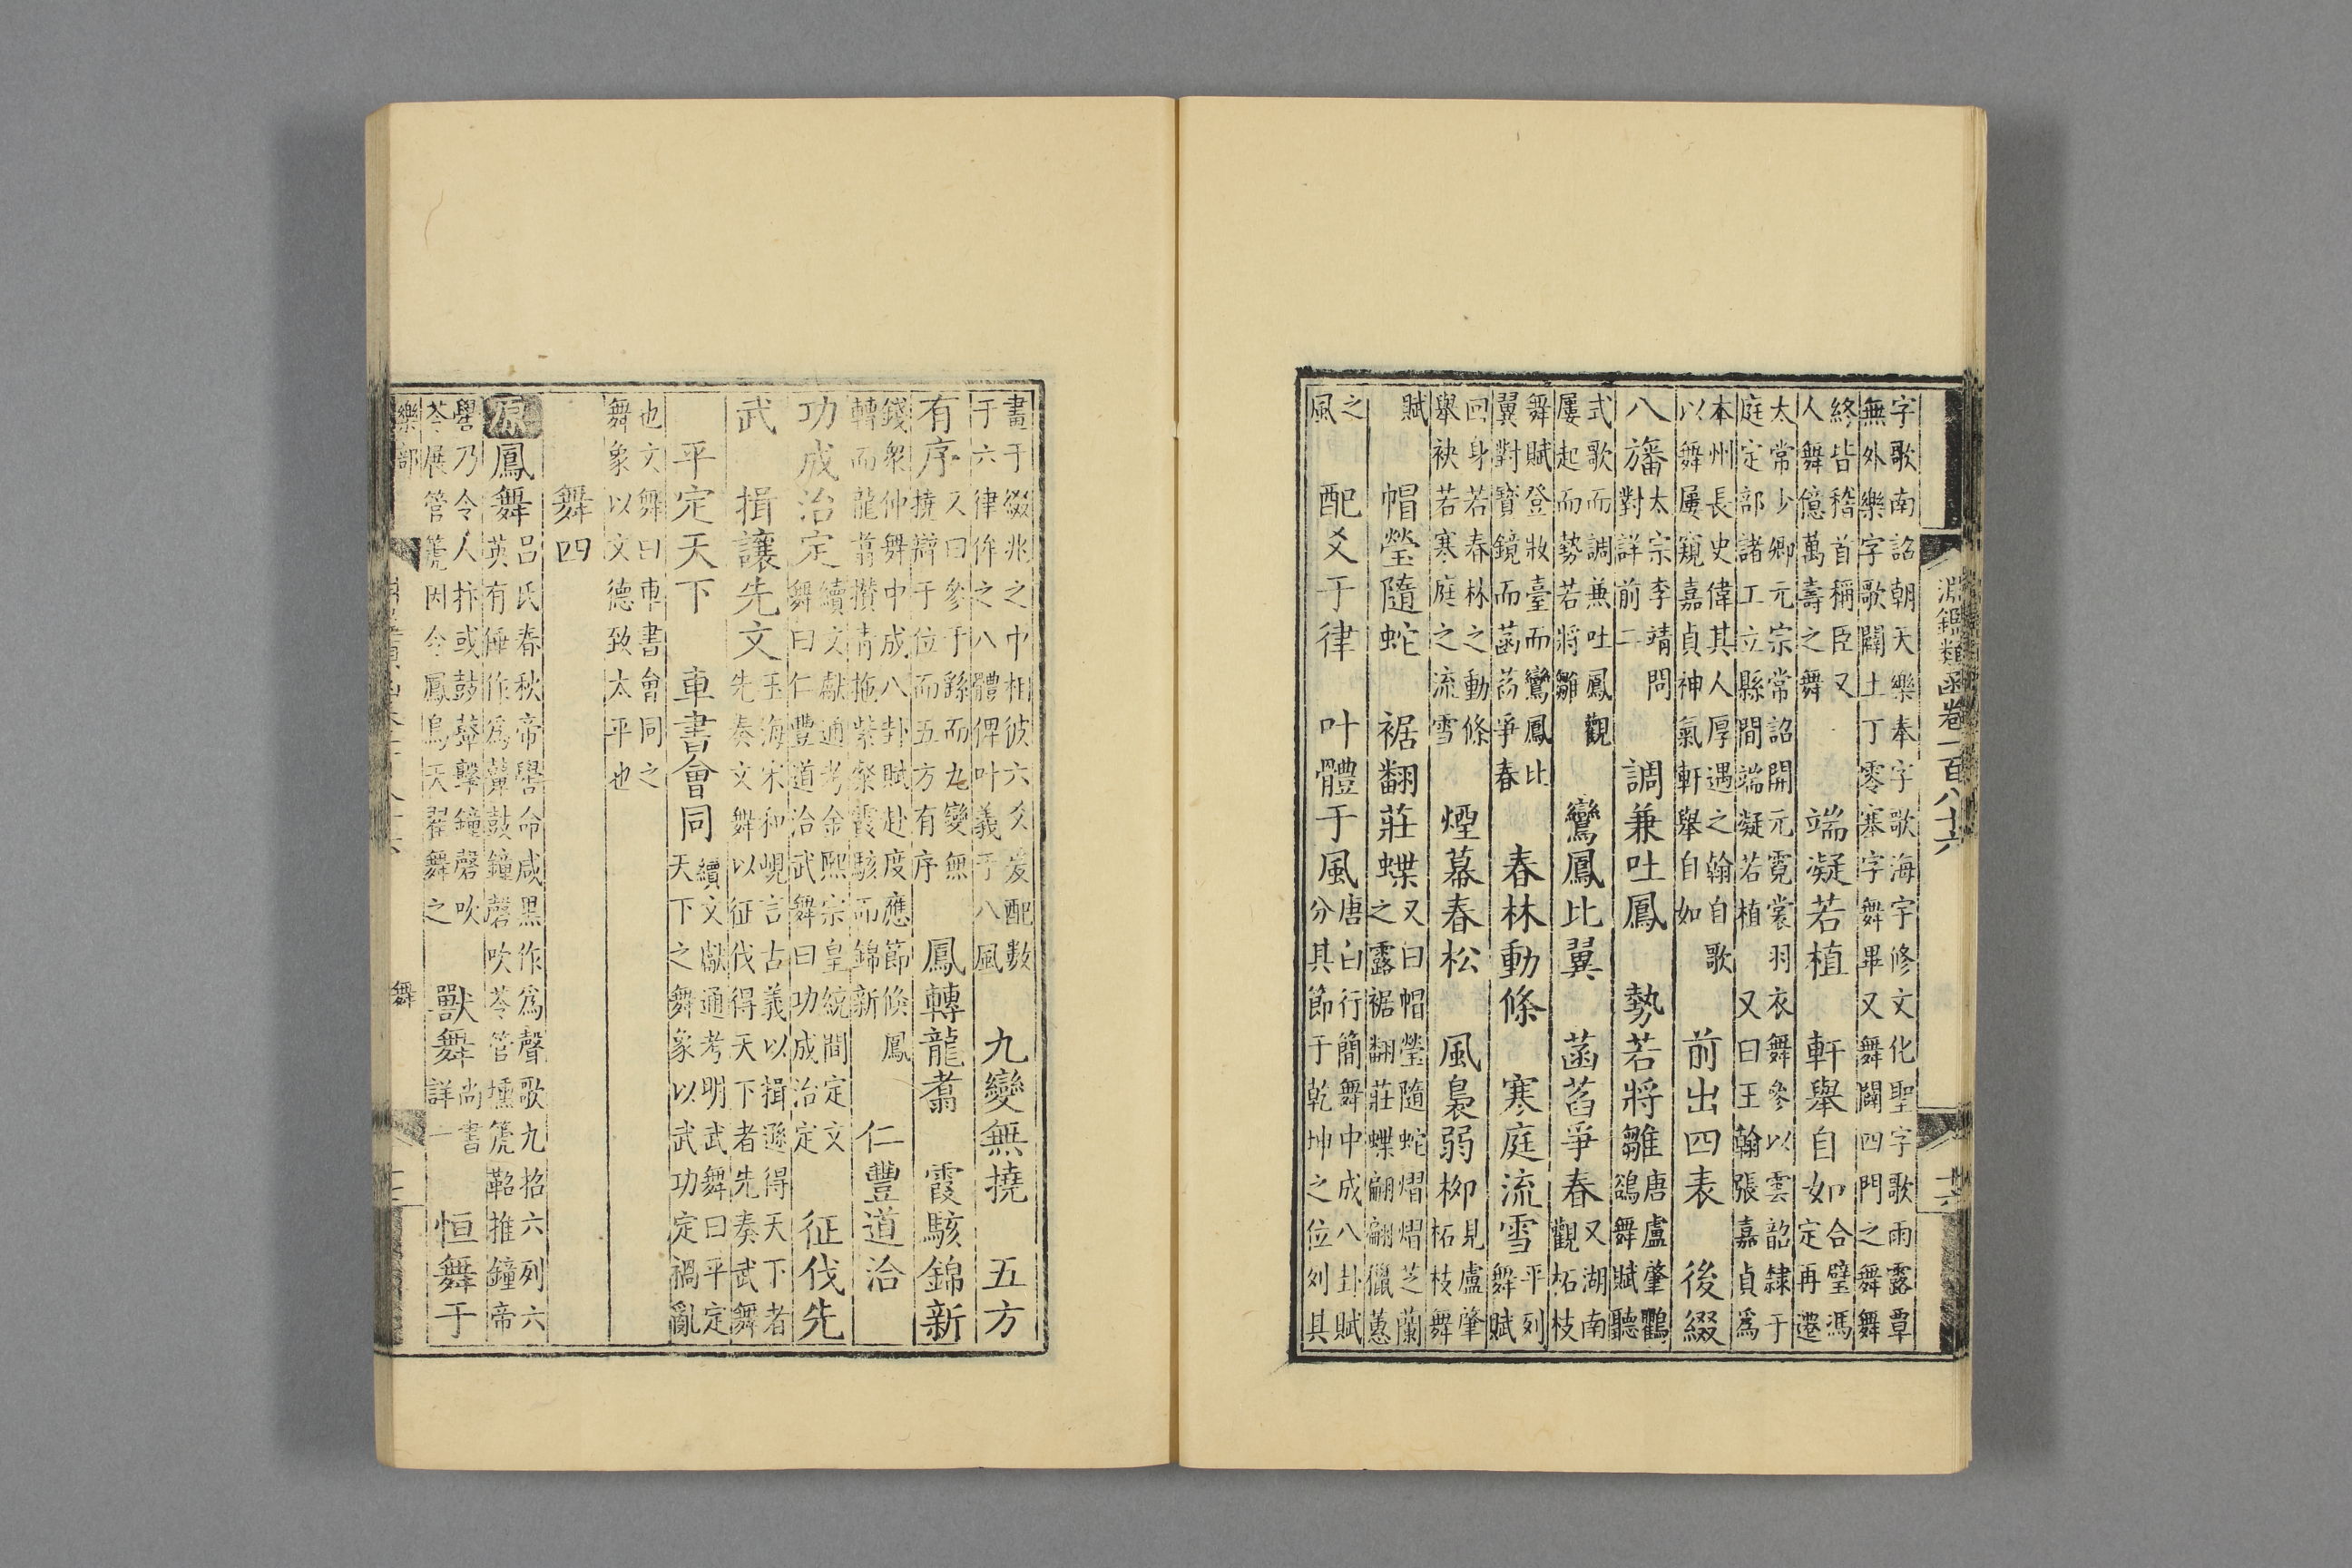 淵鑑類函卷一百八十六
十六
字歌南詔朝天樂奉字歌海宇修文化聖字歌雨露覃
無外樂字歌闢土丁零塞字舞畢又舞闢四門之舞舞
終皆稽首稱臣又
人舞億萬壽之舞
端凝若植　軒舉自如
合璧馮
定再遷
太常少卿元宗常詔開元霓裳羽衣舞參以雲韶隸于
庭定部諸工立縣間端凝若植　又曰王翰張嘉貞為
本州長史偉其人厚遇之翰自歌
以舞屢窺嘉貞神氣軒舉自如
前出四表　後綴
八旛
太宗李靖問
對詳前二
調兼吐鳳　勢若將雛
唐盧肇鸜
鵒舞賦聽
式歌而調兼吐鳳觀
屢起而勢若將雛
鸞鳳比翼　菡萏爭春
又湖南
觀柘枝
舞賦登妝臺而鸞鳳比
翼對寶鏡而菡萏爭春
春林動條　寒庭流雪
平列
舞賦
回身若春林之動條
舉袂若寒庭之流雪
煙幕春松　風裊弱柳
見盧肇
柘枝舞
賦
帽瑩隨蛇　裾翻莊蝶
又曰帽瑩隨蛇熠熠芝蘭
之露裾翻莊蝶翩翩儠蕙
之
風
配爻于律　叶體于風
唐白行簡舞中成八卦賦
分其節于乾坤之位列其
畫于綴兆之中相彼六爻爰配數
于六律侔之八體俾叶義于八風
九變無撓　五方
有序
又曰參于繇而九變無
撓辯于位而五方有序
鳳轉龍翥　霞駭錦新
錢衆仲舞中成八卦賦赴度應節倏鳳
轉而龍翥攢青拖紫粲霞駭而錦新
仁豐道洽
功成治定
續文獻通考金熙宗皇統間定文
舞曰仁豐道洽武舞曰功成治定
征伐先
武　揖讓先文
玉海宋和峴言古義以揖遜得天下者
先奏文舞以征伐得天下者先奏武舞
平定天下　車書會同
續文獻通考明武舞曰平定
天下之舞象以武功定禍亂
也文舞曰車書會同之
舞象以文德致太平也
舞四
原鳳舞
呂氏春秋帝嚳命咸黑作為聲歌九招六列六
英有倕作為鼙鼓鐘磬吹苓管壎篪鞀椎鐘帝
嚳乃令人抃或鼓鼙擊鐘磬吹
苓展管篪因令鳳鳥天翟舞之
獸舞
尚書
詳一
恒舞于
樂部
舞